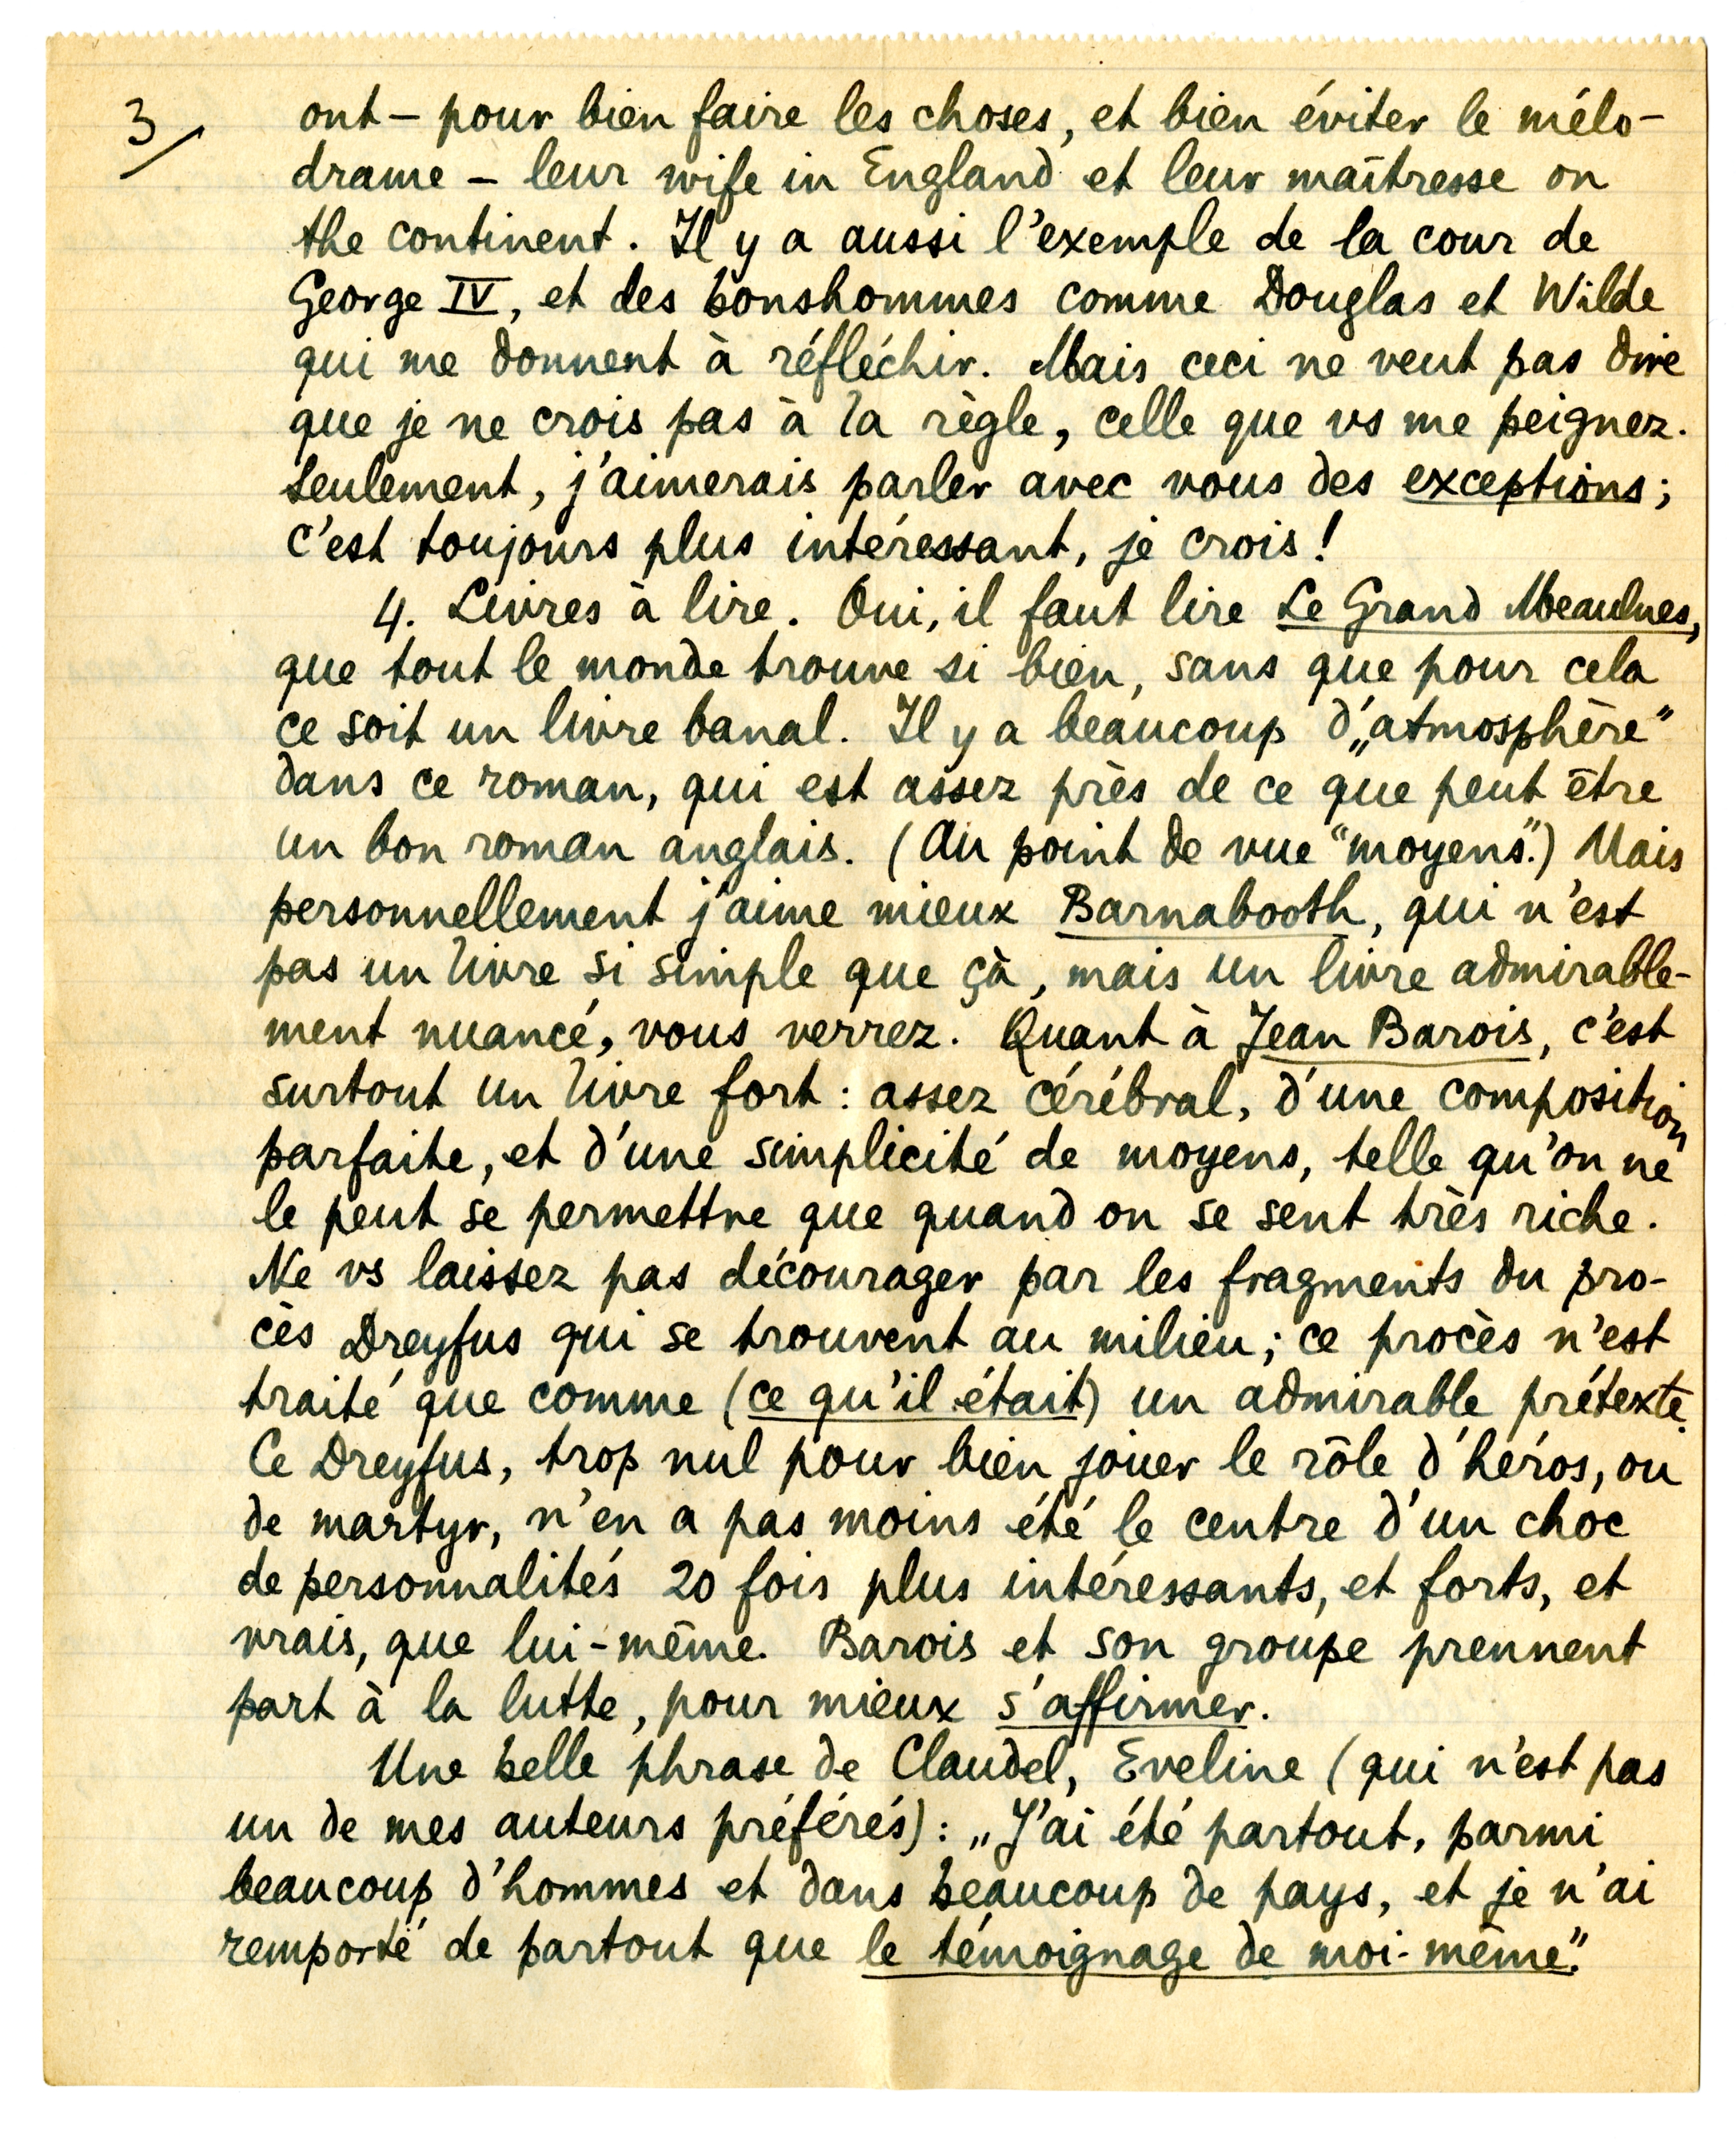 3/
ont – pour bien faire les choses, et bien éviter le mélo-
drame – leur wife in England et leur maîtresse on
the continent. Il y a aussi l'exemple de la cour de
George IV, et des bonshommes comme Douglas et Wilde
qui me donnent à réfléchir. Mais ceci ne veut pas dire
que je ne crois pas à la règle, celle que vs me peignez.
Seulement, j'aimerais parler avec vous des exceptions;
c'est toujours plus intéressant, je crois!
4. Livres à lire. Oui, il faut lire Le Grand Meaulnes,
que tout le monde trouve si bien, sans que pour cela
ce soit un livre banal. Il y a beaucoup d'„atmosphère"
dans ce roman, qui est assez près de ce que peut être
un bon roman anglais. (Au point de vue "moyens".) Mais
personnellement j'aime mieux Barnabooth, qui n'est
pas un livre si simple que çà, mais un livre admirable-
ment nuancé, vous verrez. Quant à Jean Barois, c'est
surtout un livre fort: assez cérébral, d'une composition
parfaite, et d'une simplicité de moyens, telle qu'on ne
le peut se permettre que quand on se sent très riche.
Ne vs laissez pas décourager par les fragments du pro-
cès Dreyfus qui se trouvent au milieu; ce procès n'est
traité que comme (ce qu'il était) un admirable prétexte.
Ce Dreyfus, trop nul pour bien jouer le rôle d'héros, ou
de martyr, n'en a pas moins été le centre d'un choc
de personnalités 20 fois plus intéressants, et forts, et
vrais, que lui-même. Barois et son groupe prennent
part à la lutte, pour mieux s'affirmer.
Une belle phrase de Claudel, Eveline (qui n'est pas
un de mes auteurs préférés): „J'ai été partout, parmi
beaucoup d'hommes et dans beaucoup de pays, et je n'ai
remporté de partout que le témoignage de moi-même."